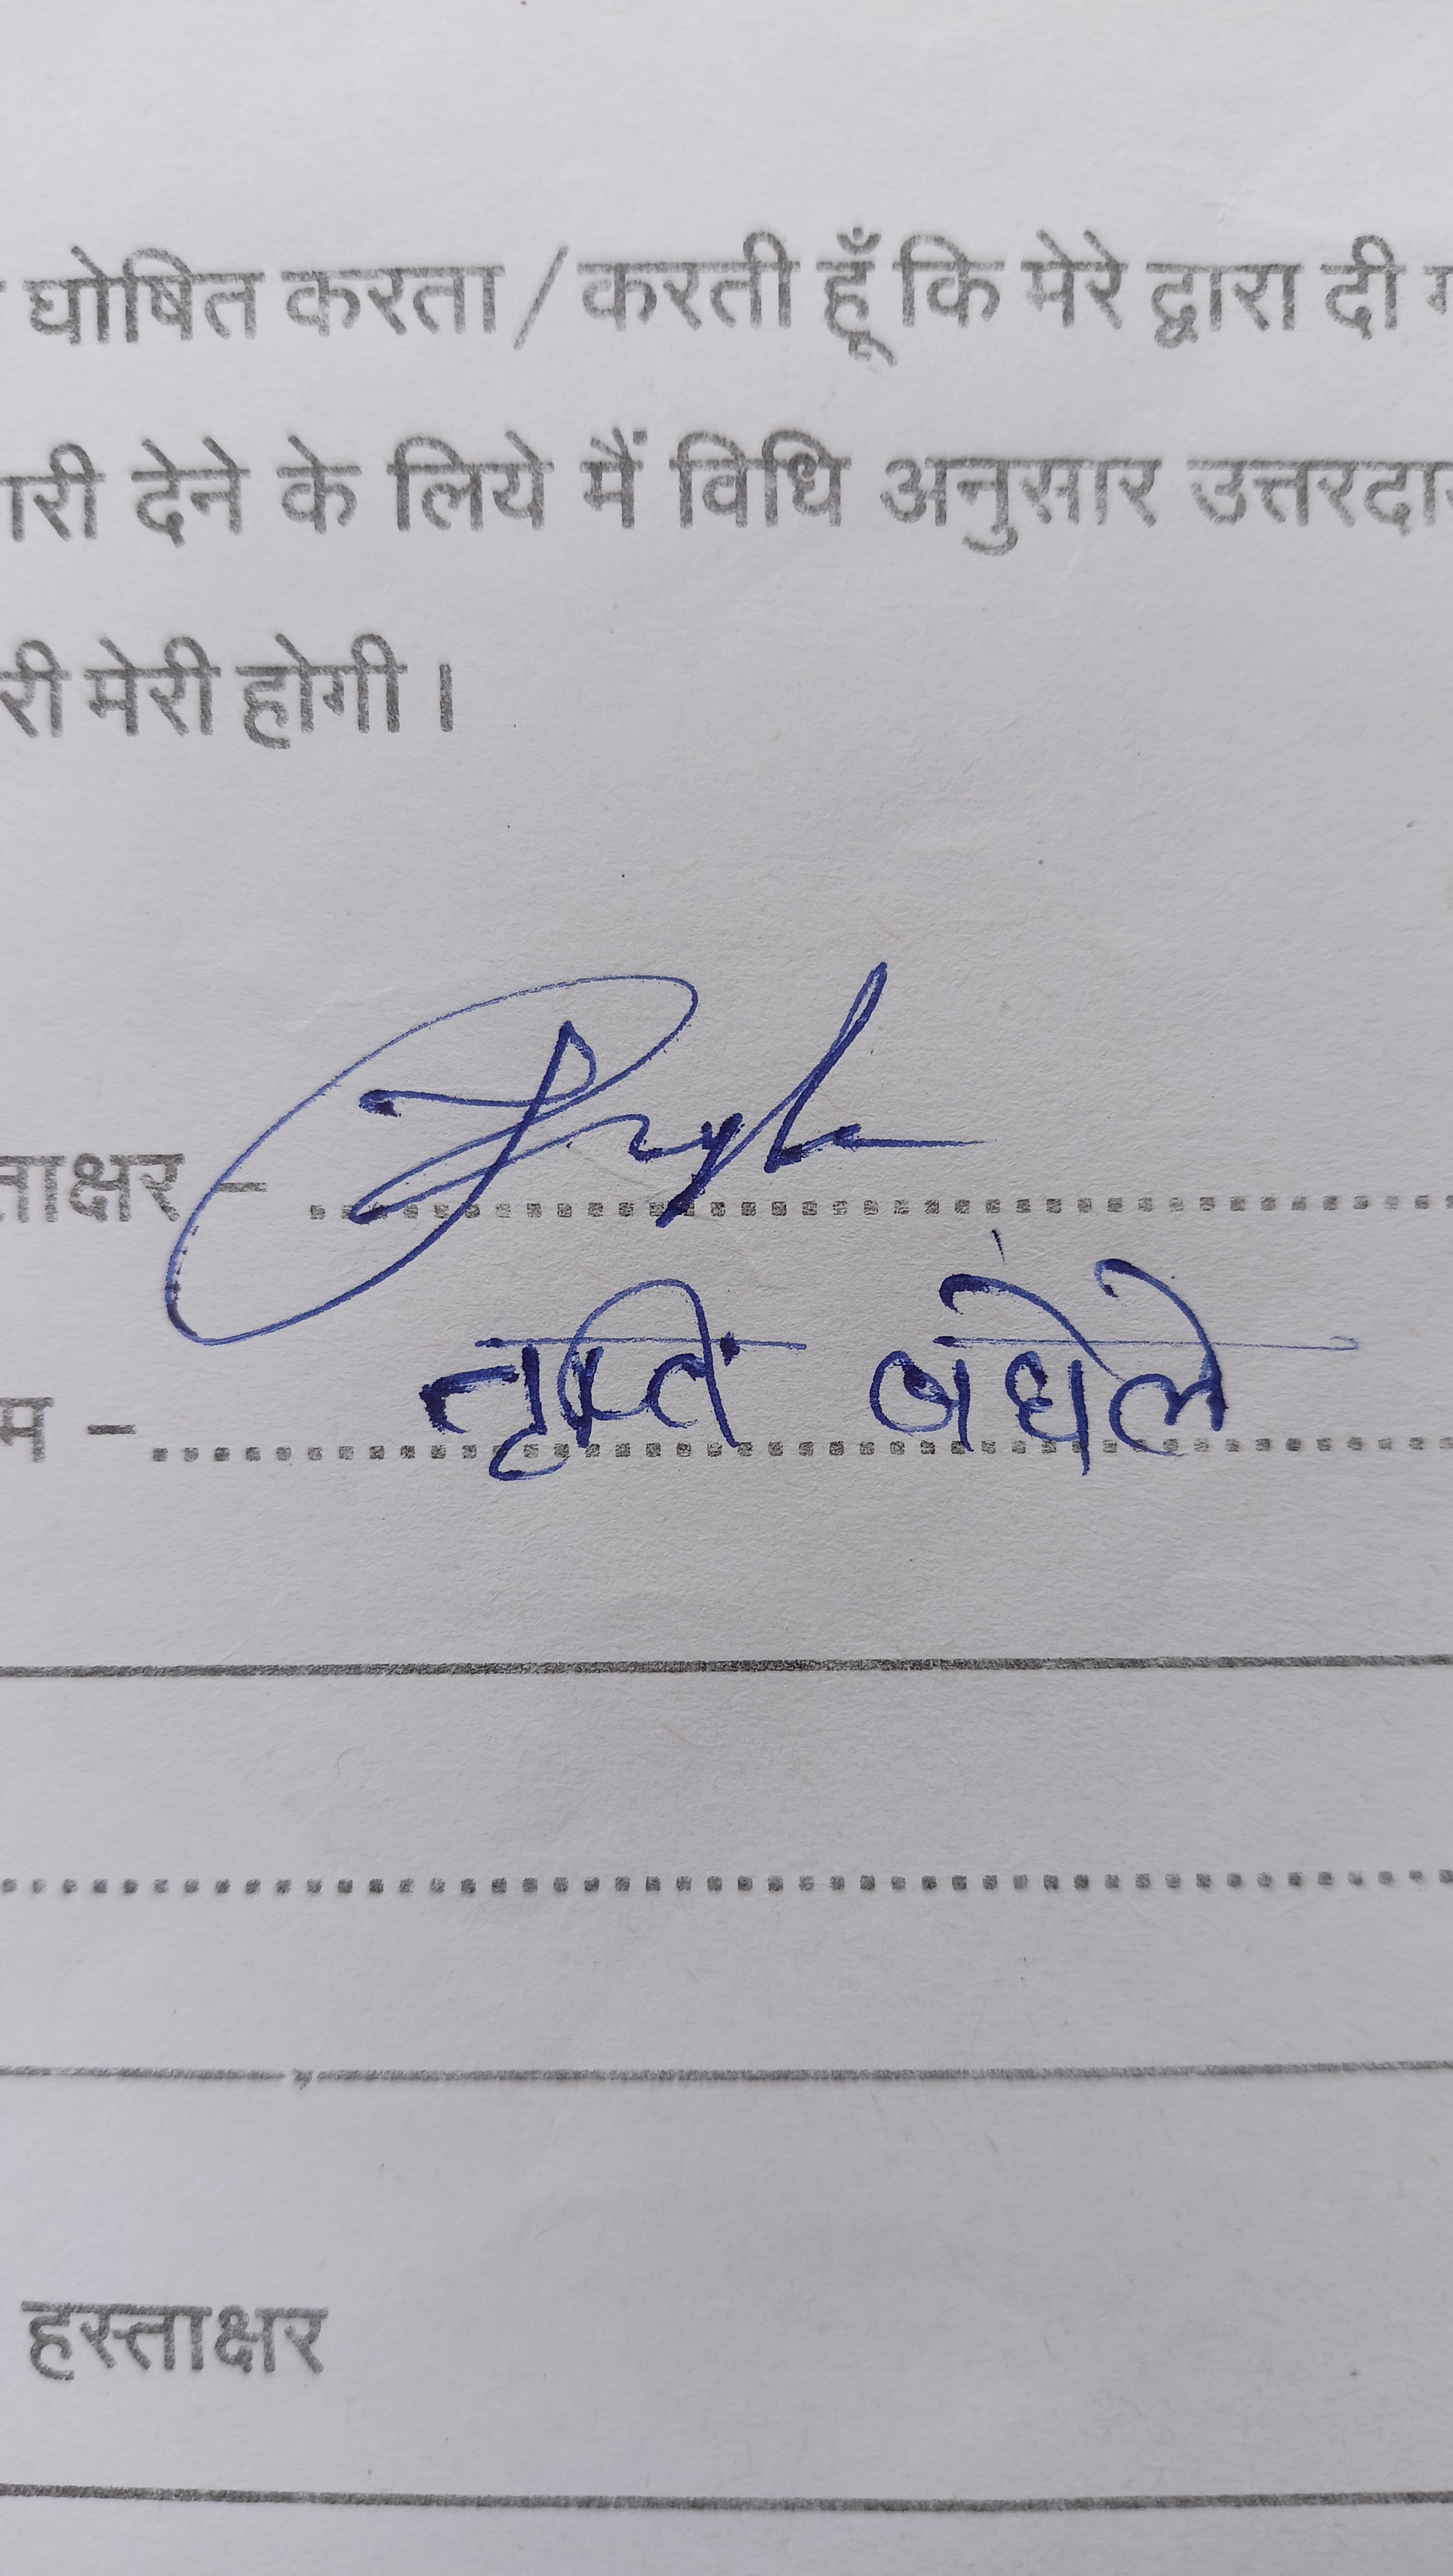 घोषित करता / करती हूँ कि मेरे द्वारा दी
री देने के लिये मैं विधि अनुसार उत्तरदा
री मेरी होगी।
ताक्षर -
म - तृप्ति बघेले
हस्ताक्षर